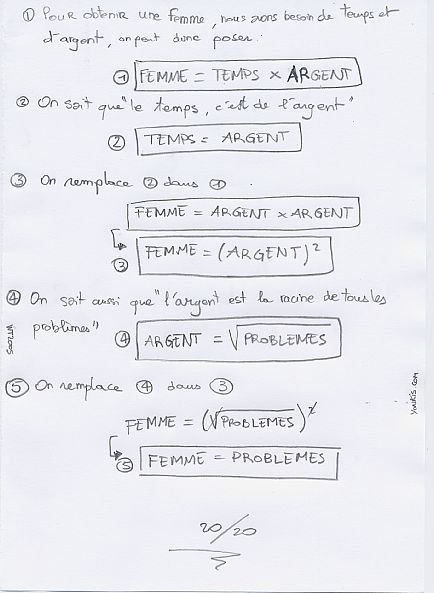 ① Pour obtenir une femme, nous avons besoin de temps et
d'argent, on peut donc poser:
① FEMME = TEMPS × ARGENT
② On sait que "le temps, c'est de l'argent"
② TEMPS = ARGENT
③ On remplace ② dans ①
FEMME = ARGENT × ARGENT
③ FEMME = (ARGENT)²
④ On sait aussi que "l'argent est la racine de tous les
problèmes"
④ ARGENT = √PROBLEMES
⑤ On remplace ④ dans ③
FEMME = (√PROBLEMES)²
⑤ FEMME = PROBLEMES
20/20